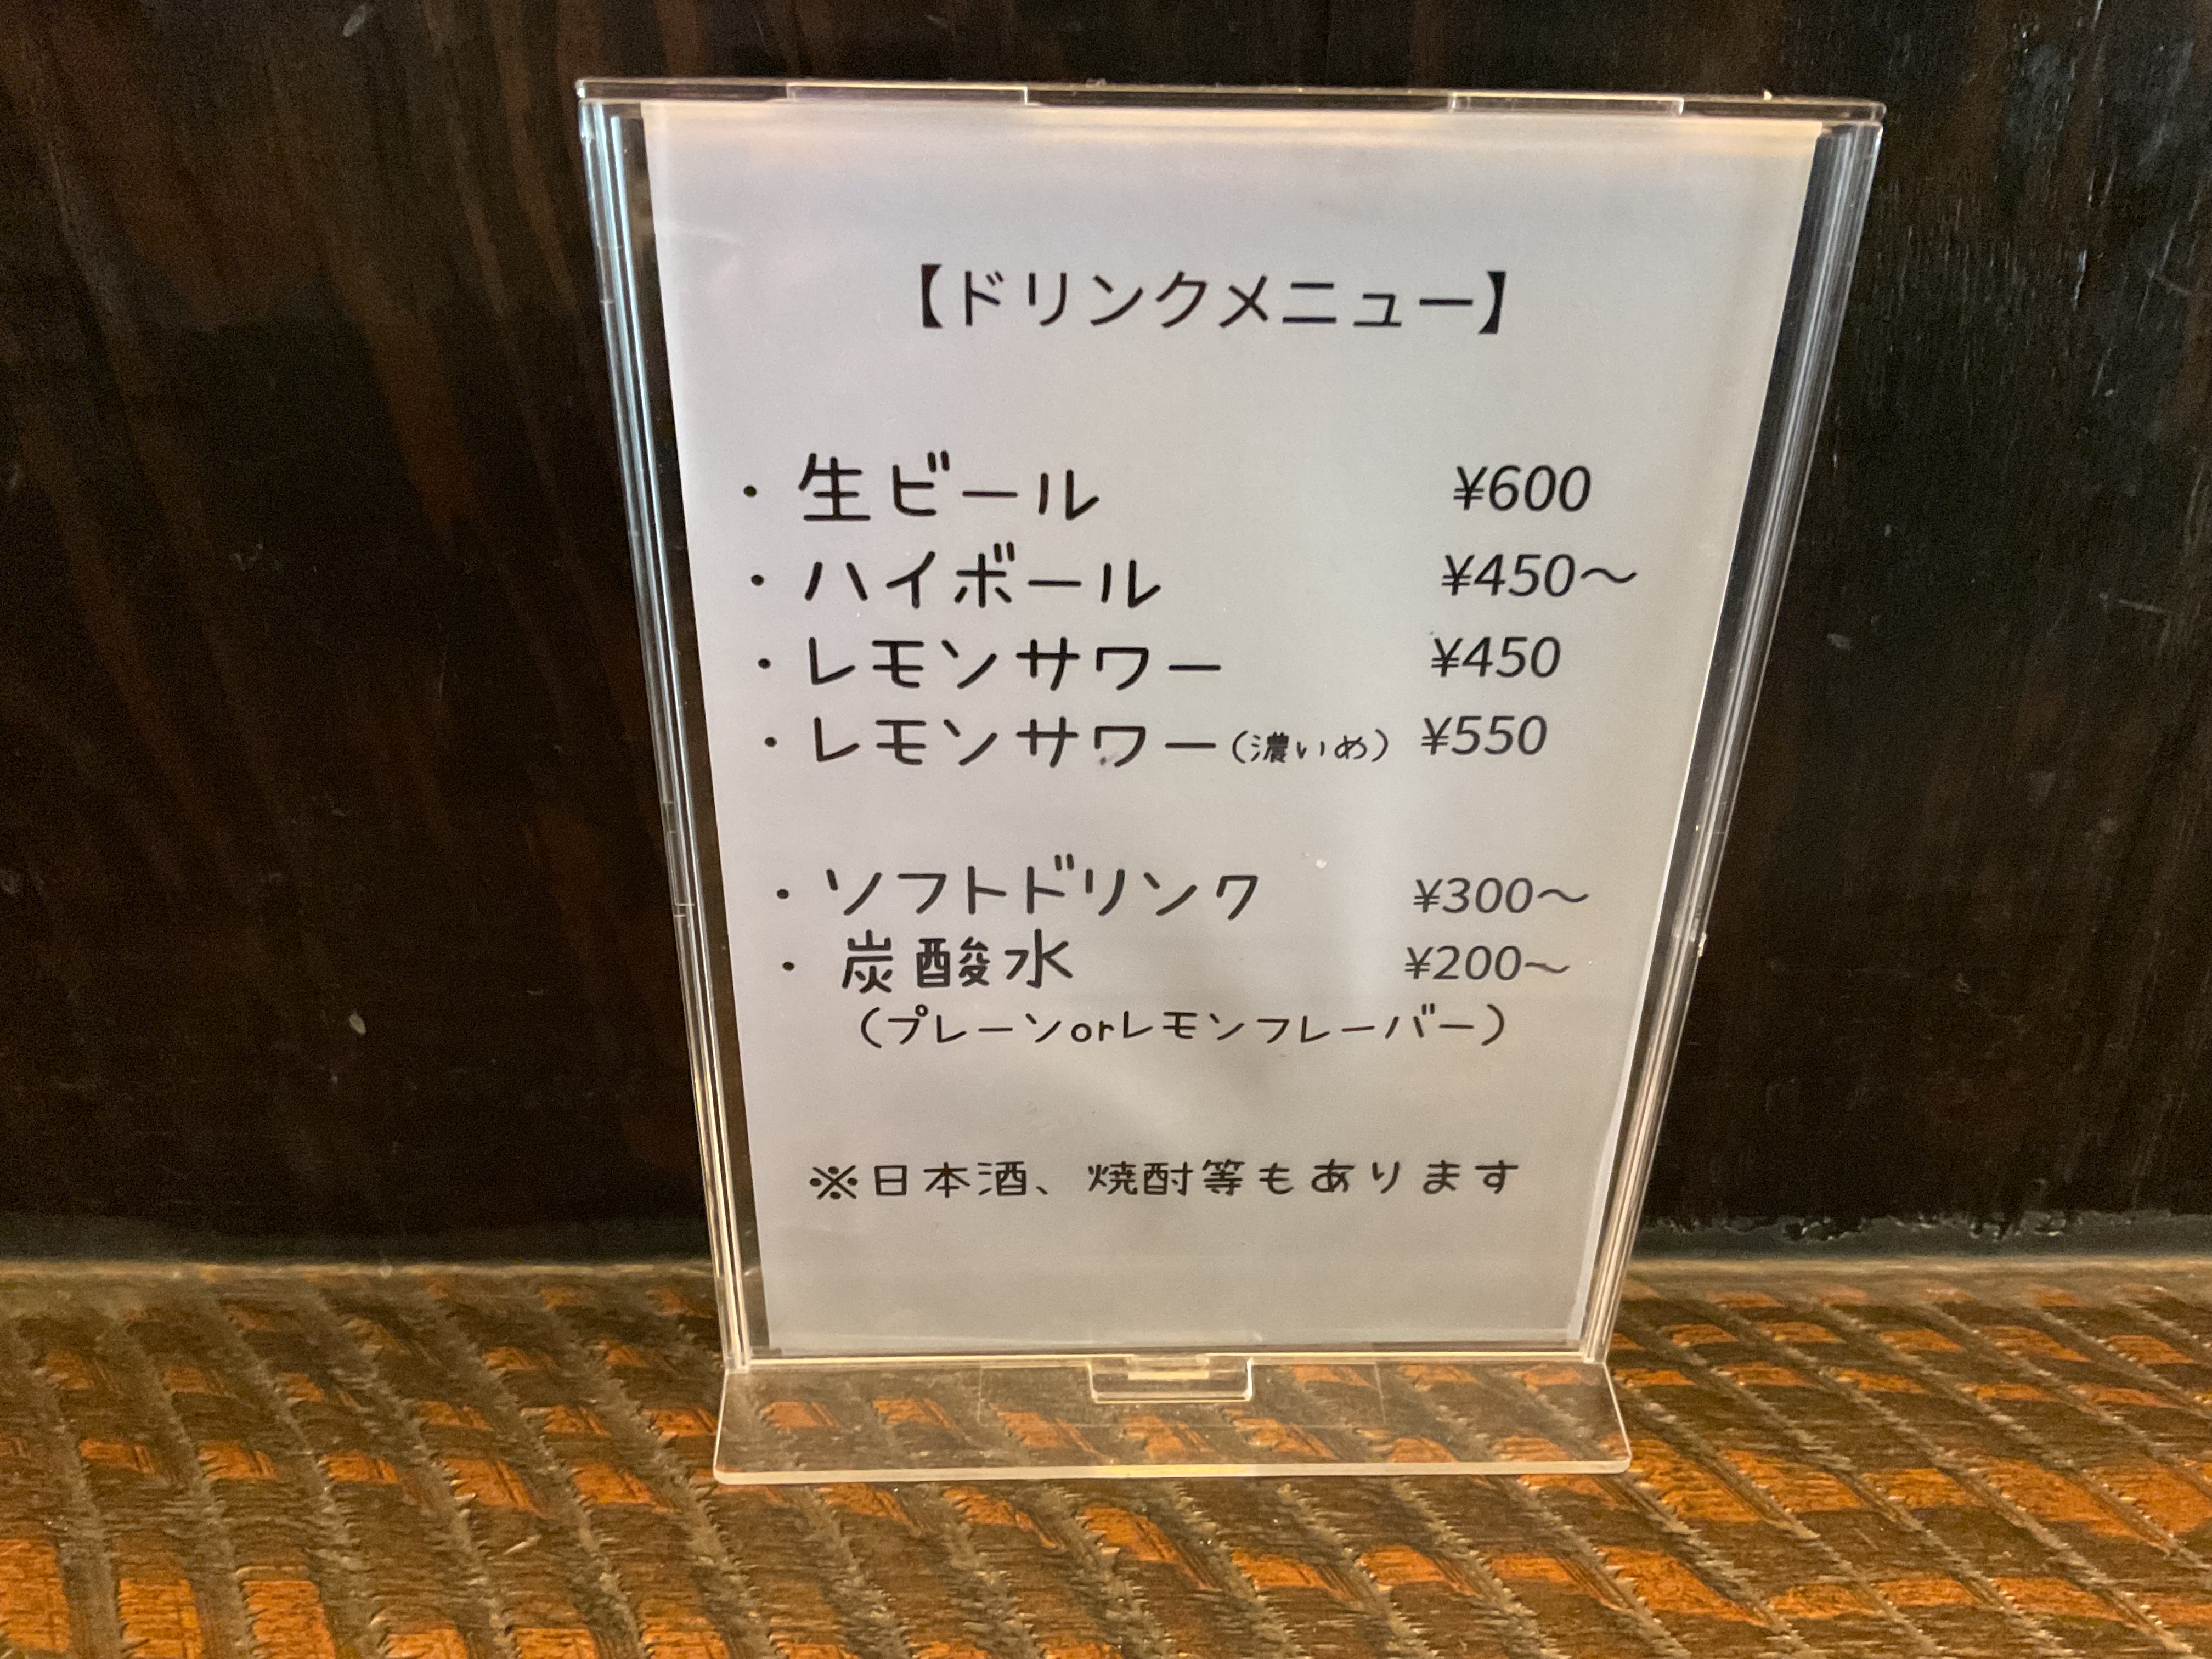 【ドリンクメニュー】
・生ビール ¥600
・ハイボール ¥450～
・レモンサワー ¥450
・レモンサワー（濃いめ） ¥550
・ソフトドリンク ¥300～
・炭酸水 ¥200～
（プレーンorレモンフレーバー）
※日本酒、焼酎等もあります